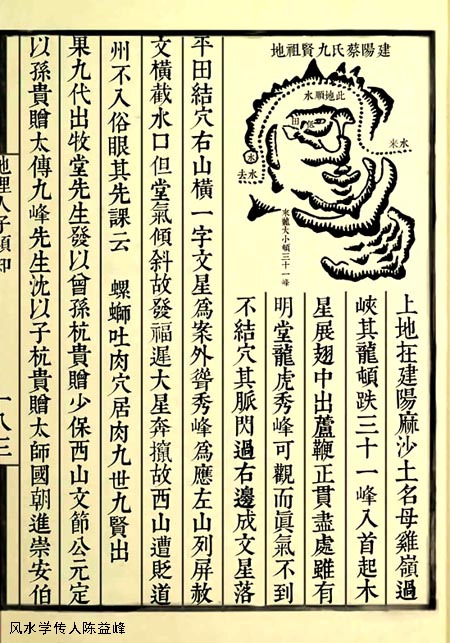 建陽蔡氏九賢祖地
此地順水
田
水來
水
水去
來龍大小頓三十一峰
上地在建陽麻沙土名母雞嶺過
峽其龍頓跌三十一峰入首起木
星展翅中出蘆鞭正貫盡處雖有
明堂龍虎秀峰可觀而眞氣不到
不結穴其脈閃過右邊成文星落
平田結穴右山橫一字文星爲案外聳秀峰爲應左山列屏赦
文橫截水口但堂氣傾斜故發福遲大星奔攛故西山遭貶道
州不入俗眼其先課云　螺螄吐肉穴居肉九世九賢出
果九代出牧堂先生發以曾孫杭貴贈少保西山文節公元定
以孫貴贈太傅九峰先生沈以子杭貴贈太師國朝進崇安伯
地理人子須知
一八三
风水学传人陈益峰